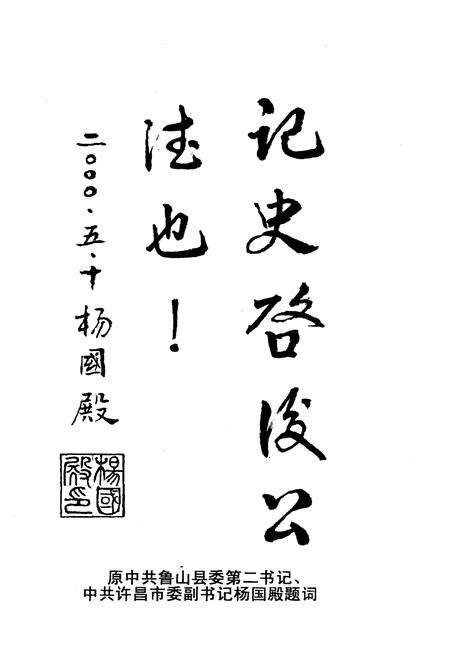 记史啓後公
德也！
二〇〇〇·五·十 杨國殿
楊國
殿印
原中共鲁山县委第二书记、
中共许昌市委副书记杨国殿题词